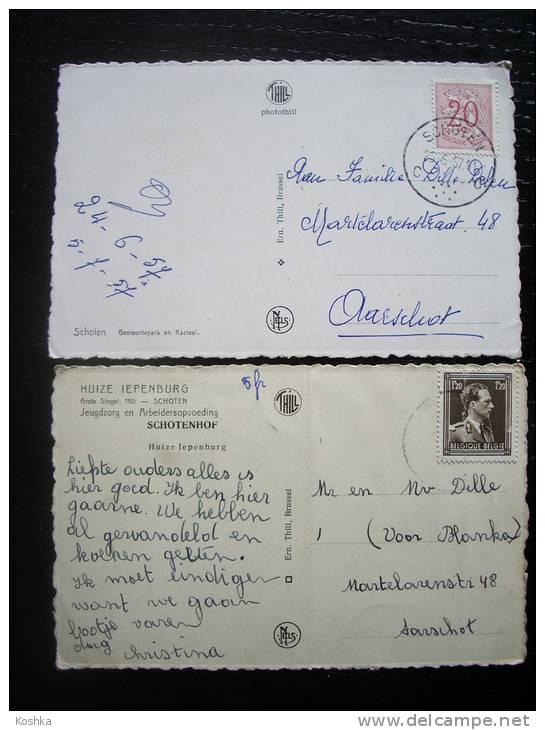 THILL
photothill
20
SCHOTEN
Aan Familie Dille
Martelarenstraat 48
Aarschot
24-6-57
5-7-57
Ern. Thill, Brussel
NELS
Schoten Gemeentepark en Kasteel.
HUIZE IEPENBURG
Grote Singel, 150 — SCHOTEN
Jeugdzorg en Arbeidersopvoeding
SCHOTENHOF
Huize Iepenburg
5 fr
THILL
1F20 1F20
BELGIQUE BELGIE
Liefste ouders alles is
hier goed. Ik ben hier
gaarne. We hebben
al gewandeld en
koeken geëten.
Ik moet eindigen
want we gaan
bootje varen
dag
Christina
Ern. Thill, Brussel
NELS
Mr en Mv Dille
1 (Voor Blanka)
Martelarenstr 48
Aarschot
Koshka
www.delcampe.net